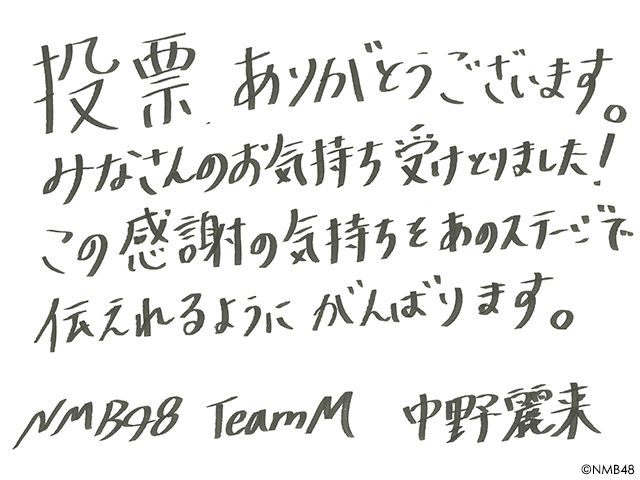 投票ありがとうございます。
みなさんのお気持ち受けとりました!
この感謝の気持ちをあのステージで
伝えれるようにがんばります。
NMB48 TeamM 中野麗来
©NMB48